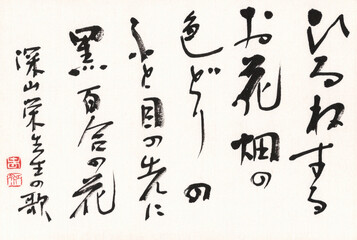 ひるねする
お花畑の
色どりの
ふと目の先に
黒百合の花
深山栄先生の歌